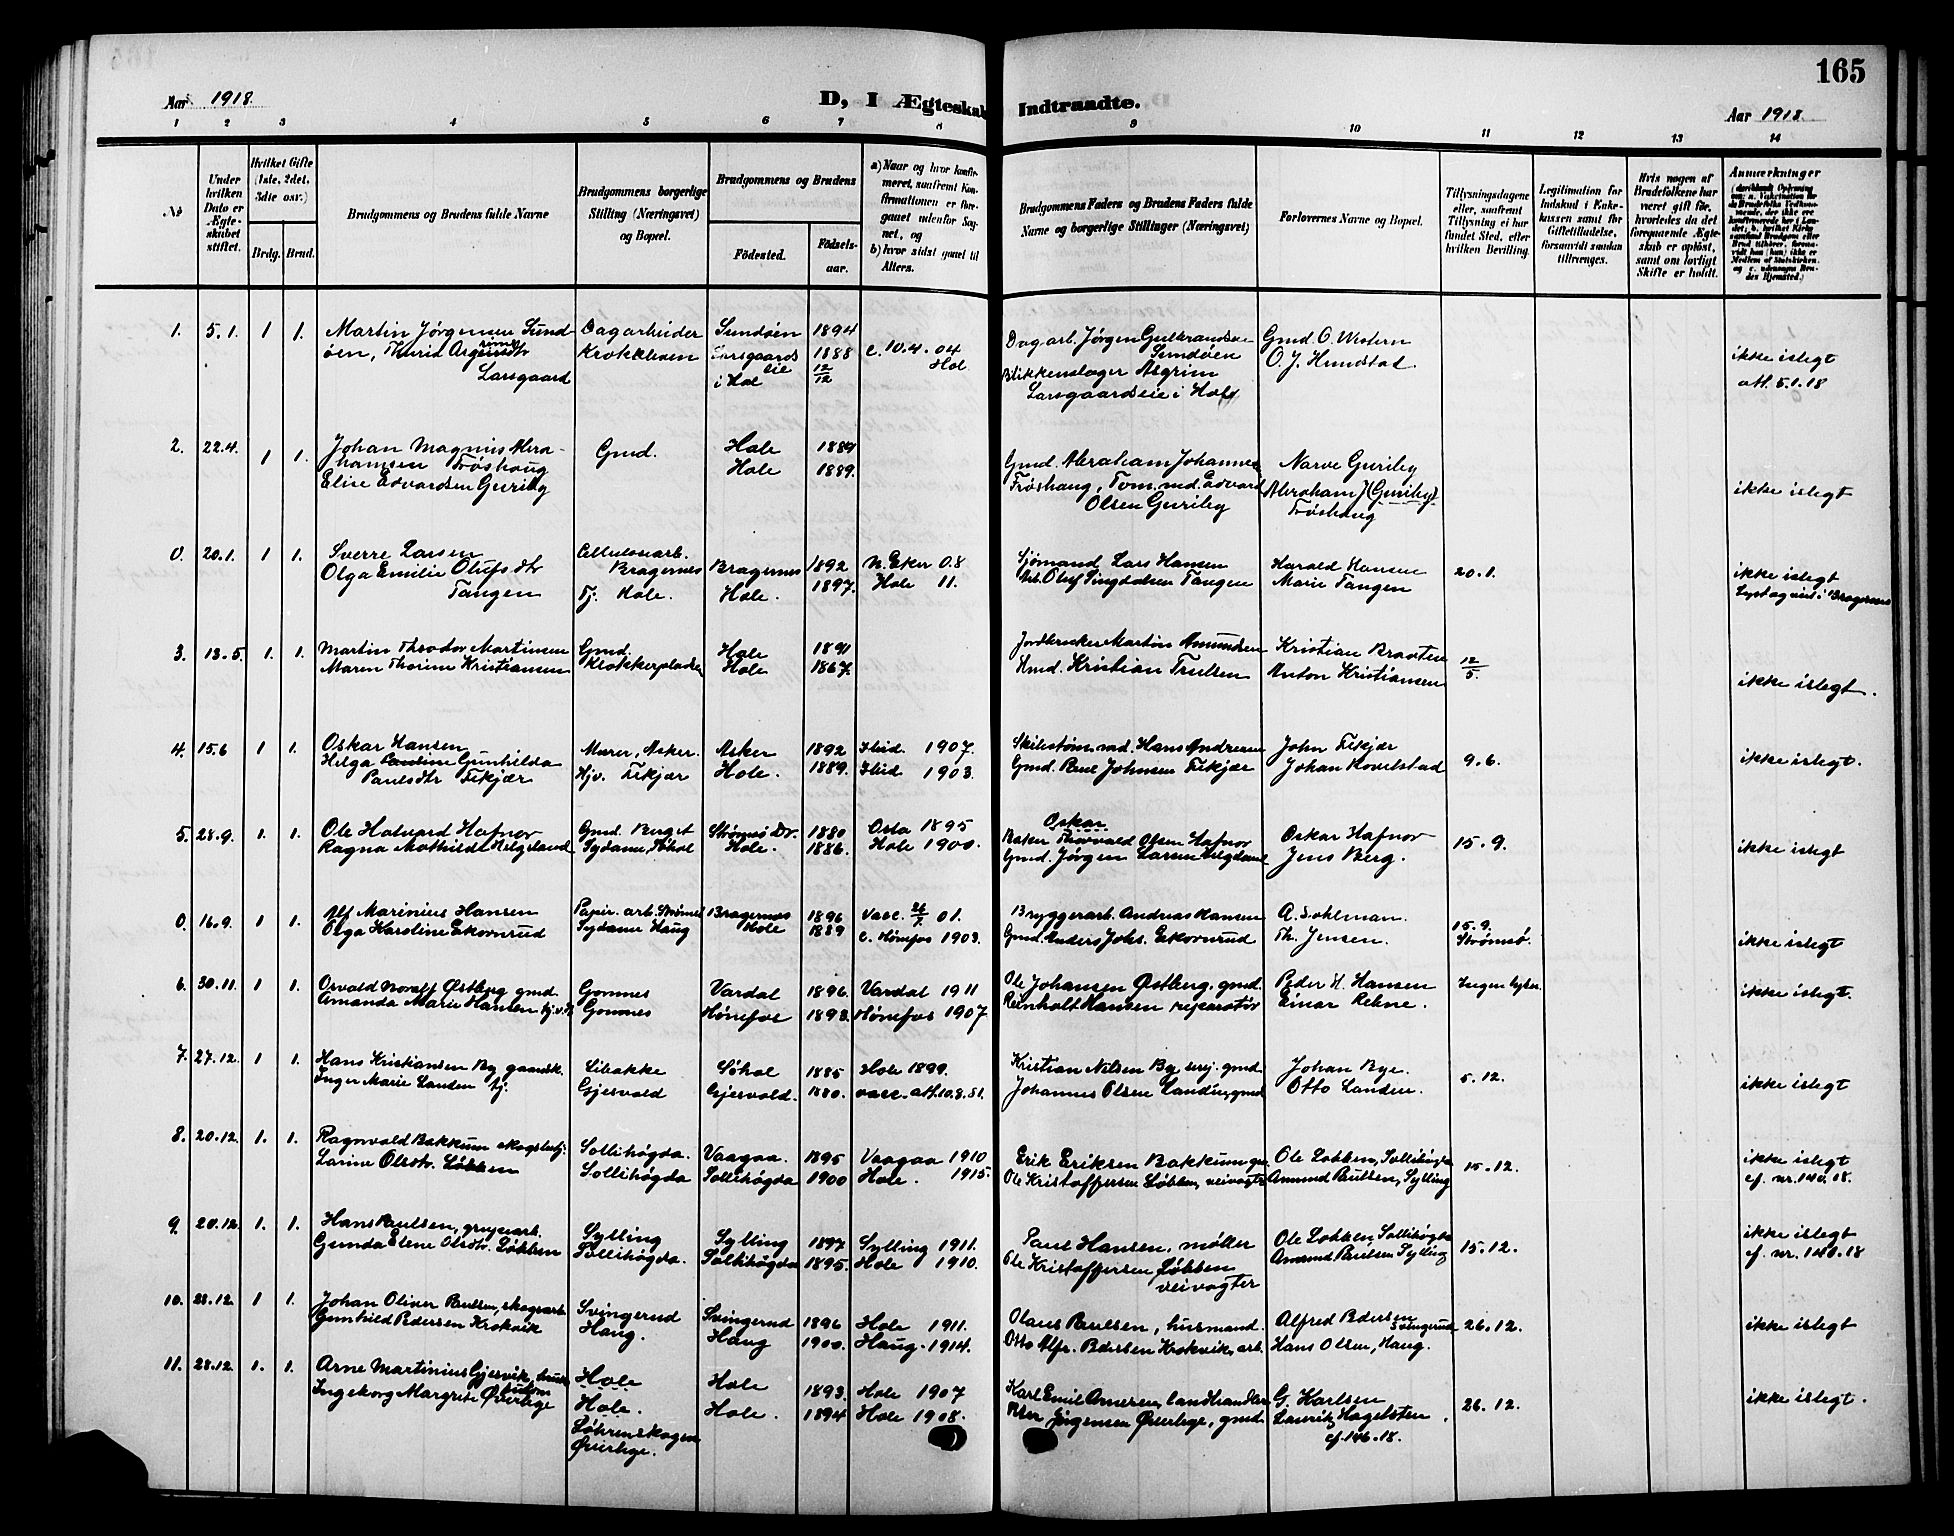 165
Aar 1918.
D, I Ægteskab
Indtraadte.
Aar 1918.
1 2 3 4 5 6 7 8 9 10 11 12 13 14
№
Under hvilken Dato er Ægteskabet stiftet.
Hvilket Gifte (1ste, 2det, 3die osv.)
Brdg. Brud.
Brudgommens og Brudens fulde Navne
Brudgommens borgerlige Stilling (Næringsvei) og Bopæl.
Brudgommens og Brudens
Fødested.
Fødselsaar.
a) Naar og hvor konfirmeret, saafremt Konfirmationen er foregaaet udenfor Sognet, og
b) hvor sidst gaaet til Alters.
Brudgommens Faders og Brudens Faders fulde Navne og borgerlige Stillinger (Næringsvei)
Forlovernes Navne og Bopæl.
Tillysningsdagene eller, saafremt Tillysning ei har fundet Sted, efter hvilken Bevilling.
Legitimation for Indskud i Enkekassen samt for Giftetilladelse, forsaavidt saadan tiltrænges.
Hvis nogen af Brudefolkene har været gift før, hvorledes da det foregaaende Ægteskab er opløst, samt om lovligt Skifte er holdt.
Anmærkninger
1. 5.1. 1 1. Martin Jørgensen Sund Dagarbeider Sundøen 1894 Dagarb. Jørgen Gulbrandsen Gmd. O. Western
øen, Thurid Asgrims dtr Krokkleven Larsgaards 1888 c. 10.4.04 Sundøen O. J. Hundstad. ikke islegt
Larsgaard eie i Hol 12/12 Hol Blikkenslager Asgrim att. 5.1.18
Larsgaardseie i Hol
2. 22.4. 1 1. Johan Magnus Abra- Gmd. Hole 1884 Gmd. Abraham Johannes Narve Guriby
hamsen Frøshaug Hole 1889. Frøshaug, Tom.md. Edvard Abraham J (Guriby) ikke islegt
Elise Edvardsen Guriby Olsen Guriby Frøshaug
0. 20.1. 1 1. Sverre Larsen Cellulosearb. Bragernes 1892 N. Eker 08 Sjømand Lars Hansen Harald Hansen 20.1. ikke islegt
Olga Emilie Olufs dtr Bragernes Hole. 1897. Hole 11. Arb. Oluf Tangen Marie Tangen
Tangen Tj. Hole.
3. 13.5. 1. 1. Martin Theodor Martinsen Gmd. Hole 1891 Jordbruker Martin Amundsen Kristian Braaten 12/5.
Maren Thorine Kristiansen Klokkerpladsen Hole 1867. Hmd. Kristian Trulsen Anton Kristiansen ikke islegt.
4. 15.6 1 1. Oskar Hansen Murer, Asker. Asker 1892 Ibid. 1907. Hans Andresen John Fekjær 9.6. ikke islegt.
Helga Pauline Gunhilda Hjv. Fekjær Hole. 1889. Ibid 1903. Gmd. Paul Johnsen Fekjær Johan Kovelstad
Paulsdtr Fekjær
5. 28.9. 1. 1. Ole Halvard Hafnor Gmd. Berget Strømsø Dr. 1880 Osta 1895 Oskar Oskar Hafnor 15.9. ikke islegt
Ragna Mathilde Helgeland Sydame, Søhol Hole. 1886. Hole 1900. Baker Thorvald Olsen Hafnor Jens Berg.
Gmd. Jørgen Larsen Helgeland
0. 16.9. 1 1. Alf Marinius Hansen Papir. arb. Strømsø Bragernes 1896 Vacc. 01. Bryggerarb. Andreas Hansen A. Sohlman. 15.9. Strømsø. ikke islegt
Olga Karoline Ekornrud Sydame Haug Hole 1889 c. Hønefos 1903. Gmd. Anders Johs. Ekornrud Th. Jensen.
6. 30.11. 1 1. Osvald Noralf Østberg gmd. Gomnes Vardal 1896. Vardal 1911 Ole Johansen Østberg, gmd. Peder H. Hansen Ingen lysn. ikke islegt.
Amanda Marie Hansen Gomnes Hønefos 1893. Hønefos 1907. Reinholt Hansen reparatør Einar Rehne.
7. 27.12. 1 1. Hans Kristiansen By gaardsk. Libakke Søhol 1885 Hole 1899. Kristian Nilsen By, gmd. Johan Bye. 5.12. ikke islegt
Inger Marie Landen tj. Gjesvold Gjesvold. 1880. vacc. att. 10.8.81. Johannes Olsen Landen, gmd. Otto Landen.
8. 20.12. 1. 1. Ragnvald Bakkum skogsbetj. Sollihøgda. Vaagaa. 1895 Vaagaa 1910 Erik Eriksen Bakkum Ole Løkken, Sollihøgda 15.12. ikke islegt
Larine Olsdtr. Løkken Sollihøgda Sollihøgda 1900 Hole. 1915. Ole Kristoffersen Løkken, veivogter Amund Paulsen, Sylling cf. nr. 140.18.
9. 20.12. 1. 1. Hans Paulsen, grubearb. Sylling Sylling 1897 Sylling 1911. Paul Hansen, møller Ole Løkken, Sollihøgda 15.12. ikke islegt
Gunda Elene Olsdtr. Løkken Sollihøgda. Sollihøgda 1895. Hole 1910. Ole Kristoffersen Løkken Amund Paulsen Sylling cf. nr. 140.18
veivogter
10. 28.12. 1 1. Johan Oliver Paulsen, skogsarb. Svingerud Svingerud 1896 Hole 1911. Olaus Paulsen, husmand. Alfred Pedersen Svingerud 26.12. ikke islegt
Gunhild Pedersen Krokvik Haug. Haug 1900. Haug. 1914. Otto Alfr. Pedersen Krokvik, arb. Hans Olsen, Haug.
11. 28.12. 1. 1. Arne Martinius Gjesvik, Hole Hole 1893. Hole 1907 Karl Emil Arnesen, landhandler G. Karlsen 26.12. ikke islegt.
Ingeborg Margrete Øverlege Hole. Hole. 1894 Hole 1908. Peter Jørgensen Øverlege, gmd. Lauritz Hagelsteen
Løkrenskogen cf. 146.18.
Øverlege.